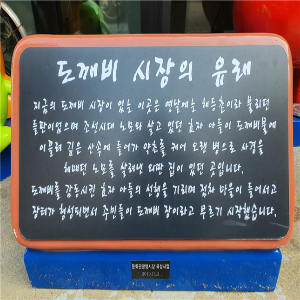 도깨비 시장의 유래
지금의 도깨비 시장이 있는 이곳은 옛날에는 해등촌이라 불리던
들판이었으며 조선시대 노모와 살고 있던 효자 아들이 도깨비불에
이끌려 깊은 산속에 들어가 약초를 캐어 오랜 병으로 사경을
헤매던 노모를 살려낸 외딴 집이 있던 곳입니다.
도깨비를 감동시킨 효자 아들의 선행을 기리며 점차 마을이 들어서고
장터가 형성되면서 주민들이 도깨비 장이라고 부르기 시작했습니다.